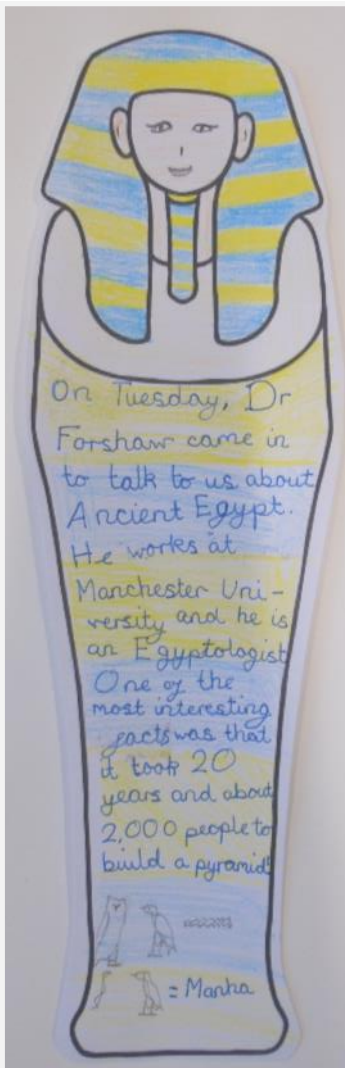 On Tuesday, Dr
Forshaw came in
to talk to us about
Ancient Egypt.
He works at
Manchester Uni-
versity and he is
an Egyptologist
One of the
most interesting
facts was that
it took 20
years and about
2,000 people to
build a pyramid!
= Manha